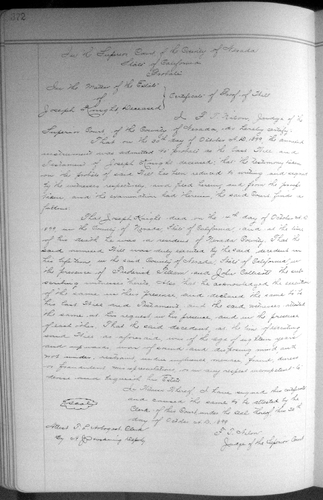 372
In the Superior Court of the County of Nevada
State of California
Probate
In the Matter of the Estate
of
Joseph Knight Deceased
Certificate of Proof of Will
I, F. T. Nilon, Judge of the
Superior Court of the County of Nevada, do hereby certify:
That on the 20th day of October A.D. 1899 the annexed
instrument was admitted to probate as the last Will and
Testament of Joseph Knight deceased; that the testimony taken
on the probate of said Will has been reduced to writing and signed
by the witnesses respectively and filed herein, and from the proofs
taken, and the examination had therein, the said Court finds as
follows:
That Joseph Knight died on the day of October A.D.
1899 in the County of Nevada, State of California, and at the time
of his death he was a resident of Nevada County. That the
said Will was duly executed by the said decedent in
his lifetime in the said County of Nevada, State of California, in
the presence of Frederick and John the sub-
scribing witnesses thereto. Also that he acknowledged the execution
of the same in their presence, and declared the same to be
his last Will and Testament, and the said witnesses attested
the same at his request, in his presence, and in the presence
of each other. That the said decedent, at the time of executing
said Will as aforesaid, was of the age of eighteen years
and upwards, was of sound and disposing mind and
not under restraint, undue influence, menace, fraud, duress
or fraudulent representations, or in any respect incompetent to
devise and bequeath his Estate.
In Witness Whereof, I have signed this certificate
and caused the same to be attested by the
Clerk of this Court under the seal thereof this 20th
day of October A.D. 1899
(Seal)
F. T. Nilon
Judge of the Superior Court
Attest Clerk
By Deputy